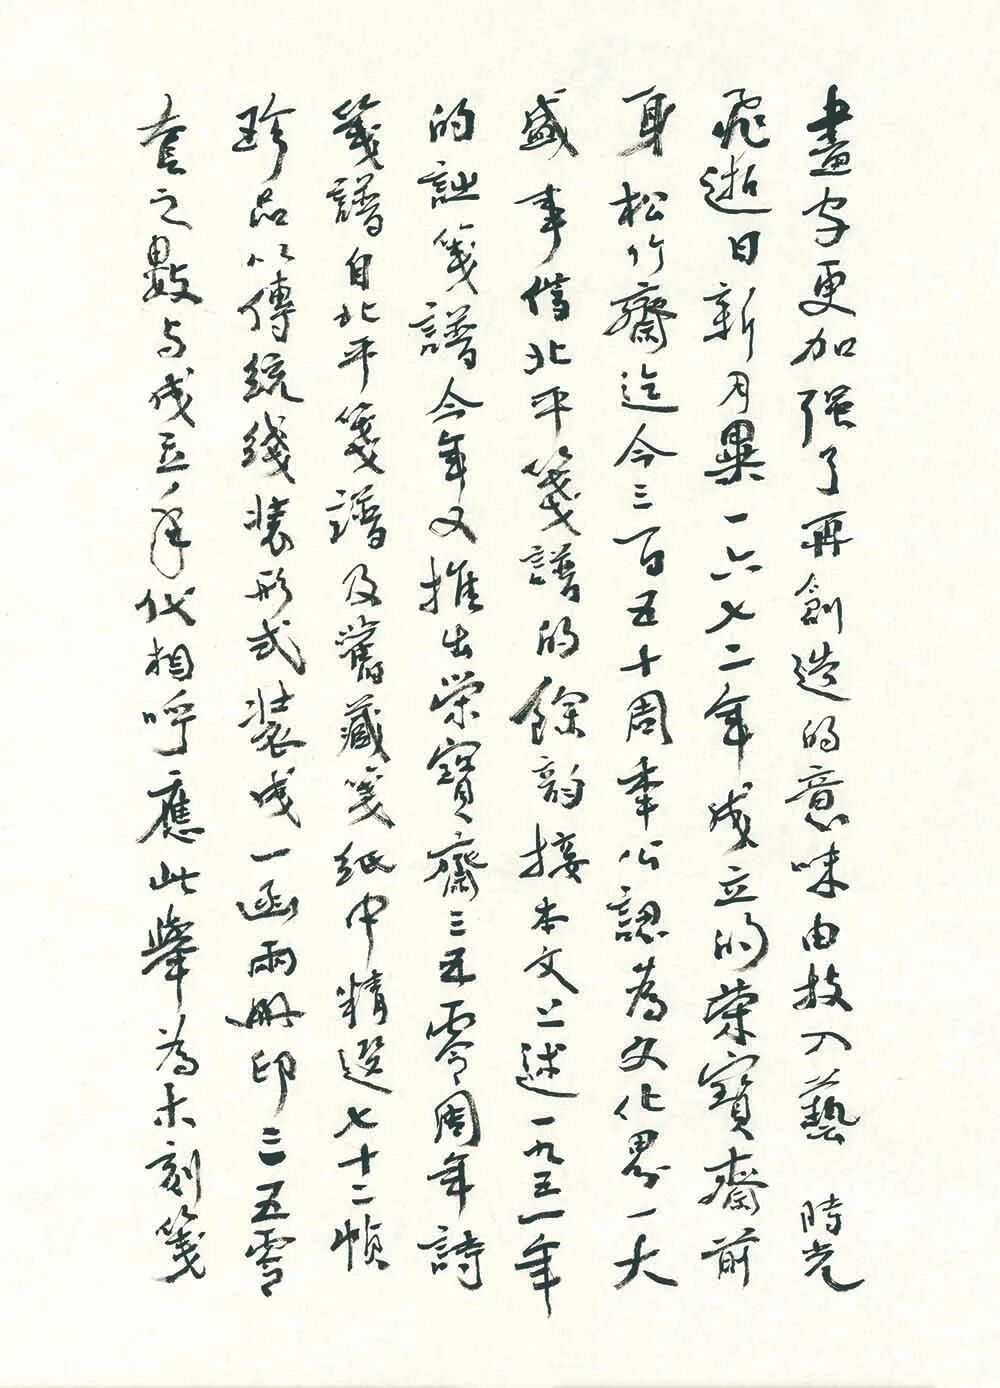 畫字更加強了再創造的意味由技入藝 時光
飛逝日新月異一六七二年成立的榮寶齋前
身松竹齋迄今三百五十周年公認為文化界一大
盛事借北平箋譜的餘韵接本文上述一九五一年
的詩箋譜今年又推出榮寶齋三五零周年詩
箋譜自北平箋譜及舊藏箋紙中精選七十二幀
珍品以傳統綫裝形式裝成一函兩冊印三五零
套之數与成立年代相呼應此舉為木刻箋